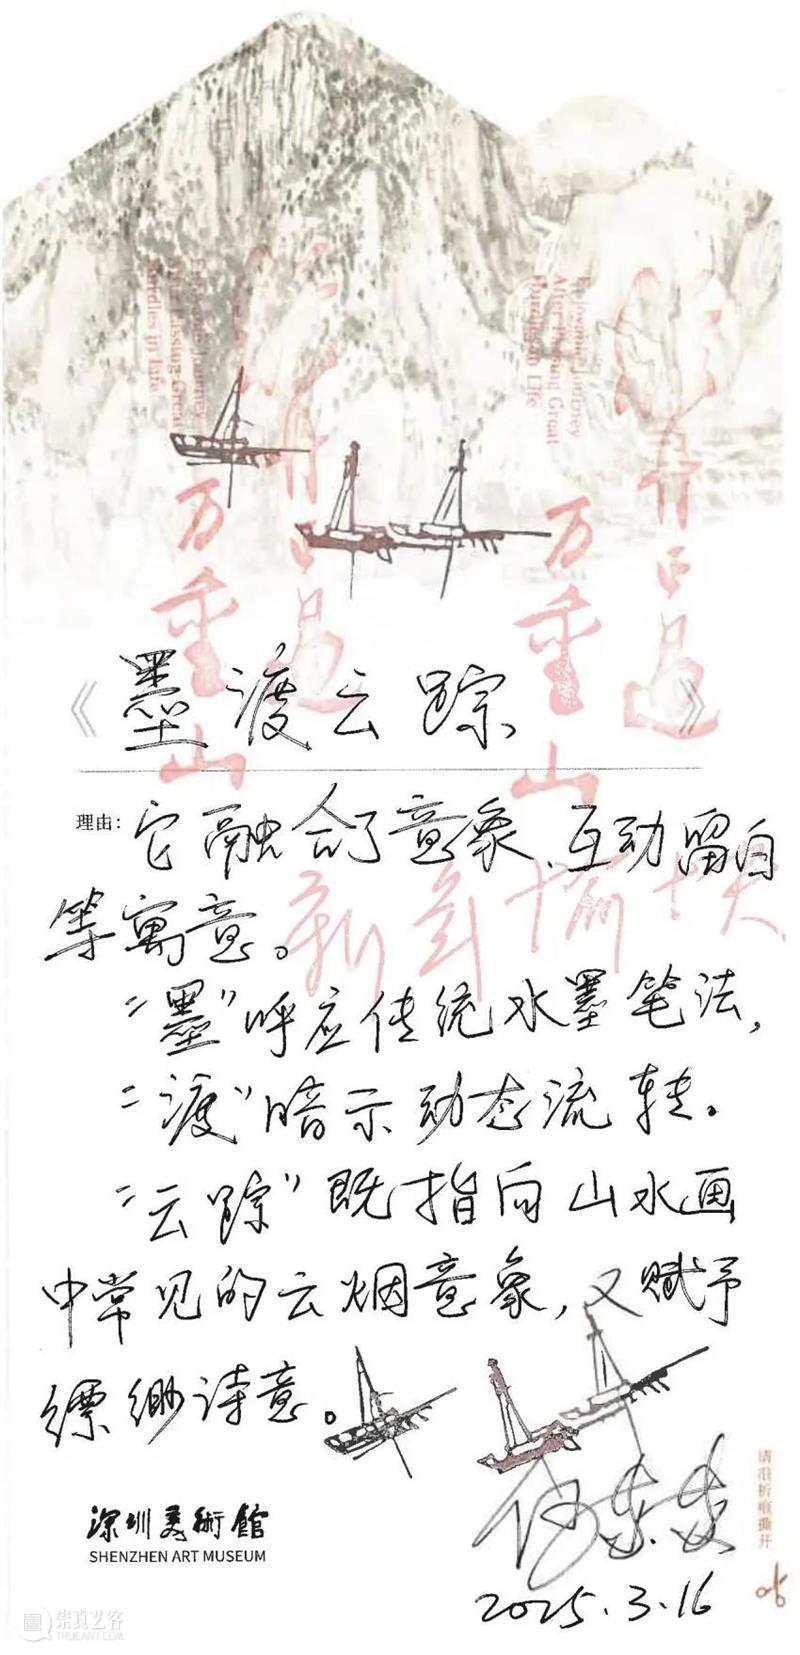 Enjoyable Journey
After Passing Great
Hurdles in Life
Enjoyable Journey
After Passing Great
Hurdles in Life
轻舟已过
万重山
轻舟已过
万重山
《墨渡云踪》
理由：它融合了意象、互动留白
等寓意。
新年愉快
“墨”呼应传统水墨笔法，
“渡”暗示动态流转。
“云踪”既指向山水画
中常见的云烟意象，又赋予
缥缈诗意。
深圳美術館
SHENZHEN ART MUSEUM
2025.3.16
请沿折痕撕开
崇真艺客
TRUEART.COM